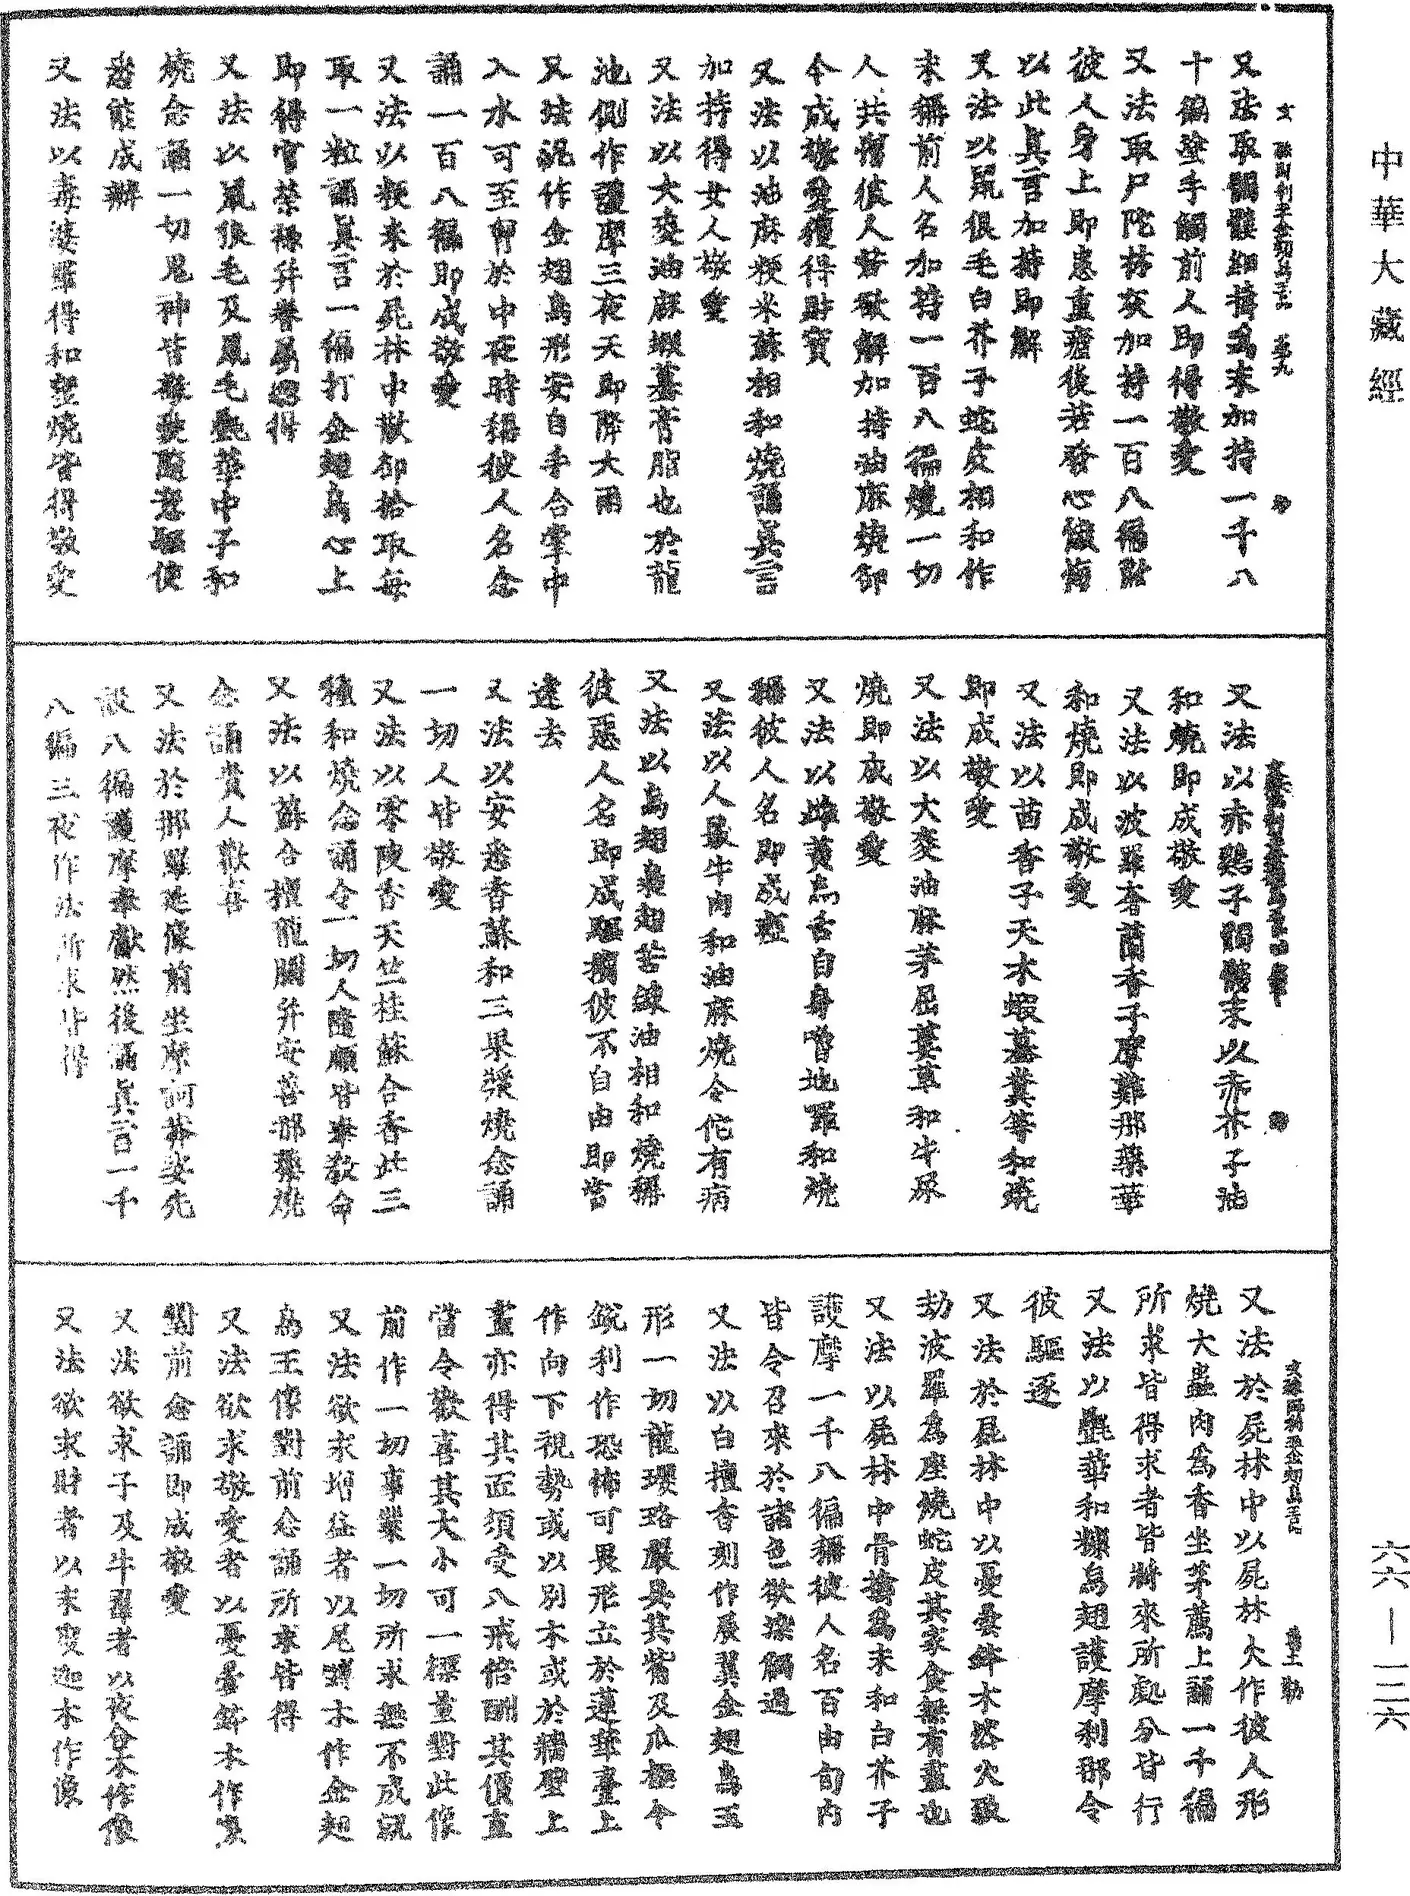 中華大藏經
又法取髑髏細擣為末加持一千八
十徧塗手觸前人即得敬愛
又法取尸陀林灰加持一百八徧散
彼人身上即患重瘧後若發心懺悔
以此真言加持即解
又法以鼠狼毛白芥子蛇皮相和作
末稱前人名加持一百八徧燒一切
人共憎彼人若欲解加持油麻燒卻
令成敬愛獲得財寶
又法以油麻粳米蘇相和燒誦真言
加持得女人敬愛
又法以大麥油麻蝦蟇膏脂也於龍
池側作護摩三夜天即降大雨
又法況作金翅鳥形安自手合掌中
入水可至臍於中夜時稱彼人名念
誦一百八徧即成敬愛
又法以粳米於屍林中散卻拾取每
取一粒誦真言一徧打金翅鳥心上
即得官榮祿并眷屬總得
又法以鼠狼毛及鼠毛㲲華中子和
燒念誦一切鬼神皆敬伏隨意驅使
悉能成辦
又法以毒婆羅得和鹽燒皆得敬愛
又法以赤雞子髑髏末以赤芥子油
和燒即成敬愛
又法以波羅奢蘭香子摩難那藥華
和燒即成敬愛
又法以茴香子天木蝦蟇糞等和燒
即成敬愛
又法以大麥油麻茅屈蔞草和牛尿
燒即成敬愛
又法以雌黃烏舌自身嚕地羅和燒
稱彼人名即成
又法以人最牛肉和油麻燒令佗有病
又法以烏翅梟翅苦練油相和燒稱
彼惡人名即成驅擯彼不自由即當
遠去
又法以安悉香蘇和三果漿燒念誦
一切人皆敬愛
又法以零陵香天竺桂蘇合香此三
種和燒念誦令一切人隨願皆奉教命
又法以蘇合檀龍腦并安善那藥燒
念誦貴人歡喜
又法於那羅延像前坐摩訶莽娑先
設八徧護摩奉獻然後誦真言一千
八徧三夜作法所求皆得
又法於屍林中以屍林火作彼人形
燒大蟲肉為香坐茅薦上誦一千徧
所求皆得求者皆將來所處分皆行
又法以㲲華和糠烏翅護摩利那令
彼驅逐
又法於屍林中以憂曇鉢木然火敵
劫波羅為座燒蛇皮其家食無有盡也
又法以屍林中骨擣為末和白芥子
護摩一千八徧稱彼人名百由旬內
皆令召來於諸色欲染觸過
又法以白檀香刻作展翼金翅鳥王
形一切龍瓔珞嚴具其觜及爪極令
銳利作恐怖可畏形立於蓮華臺上
作向下視勢或以別木或於牆壁上
畫亦得其畫須受八戒倍酬其價直
當令歡喜其大小可一磔量對此像
前作一切事業一切所求無不成就
又法欲求增益者以尾嚩木作金翅
鳥王像對前念誦所求皆得
又法欲求敬愛者以憂曇鉢木作像
對前念誦即成敬愛
又法欲求子及牛羣者以夜合木作像
又法欲求財者以末度迦木作像
六六—一二六